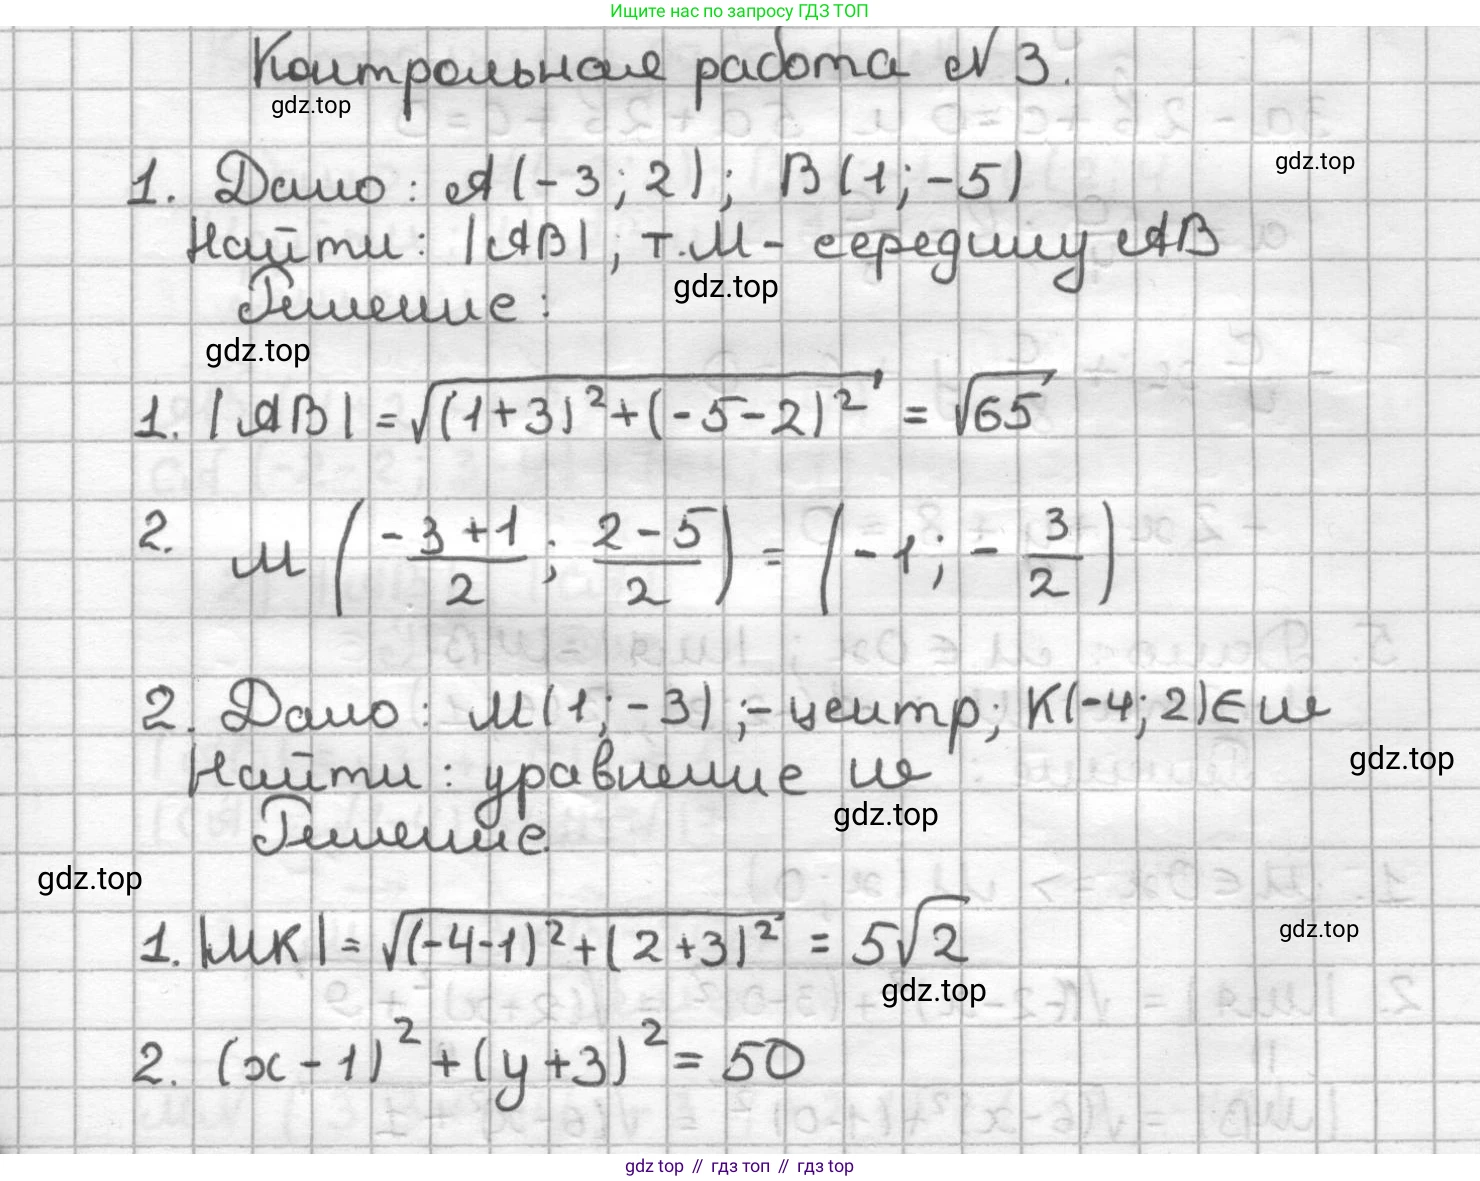 Ищите нас по запросу ГДЗ ТОП
Контрольная работа № 3.
gdz.top
gdz.top
1. Дано: A(-3; 2); B(1; -5)
Найти: |AB|; т.M - середину AB
gdz.top
Решение:
gdz.top
1. |AB| = √((1+3)² + (-5-2)²) = √65
2. M (-3+1/2; 2-5/2) = (-1; -3/2)
2. Дано: M(1; -3); - центр; K(-4; 2) ∈
Найти: уравнение
gdz.top
gdz.top
Решение.
gdz.top
1. |MK| = √((-4-1)² + (2+3)²) = 5√2
gdz.top
gdz.top
2. (x-1)² + (y+3)² = 50
gdz top // гдз топ // gdz top